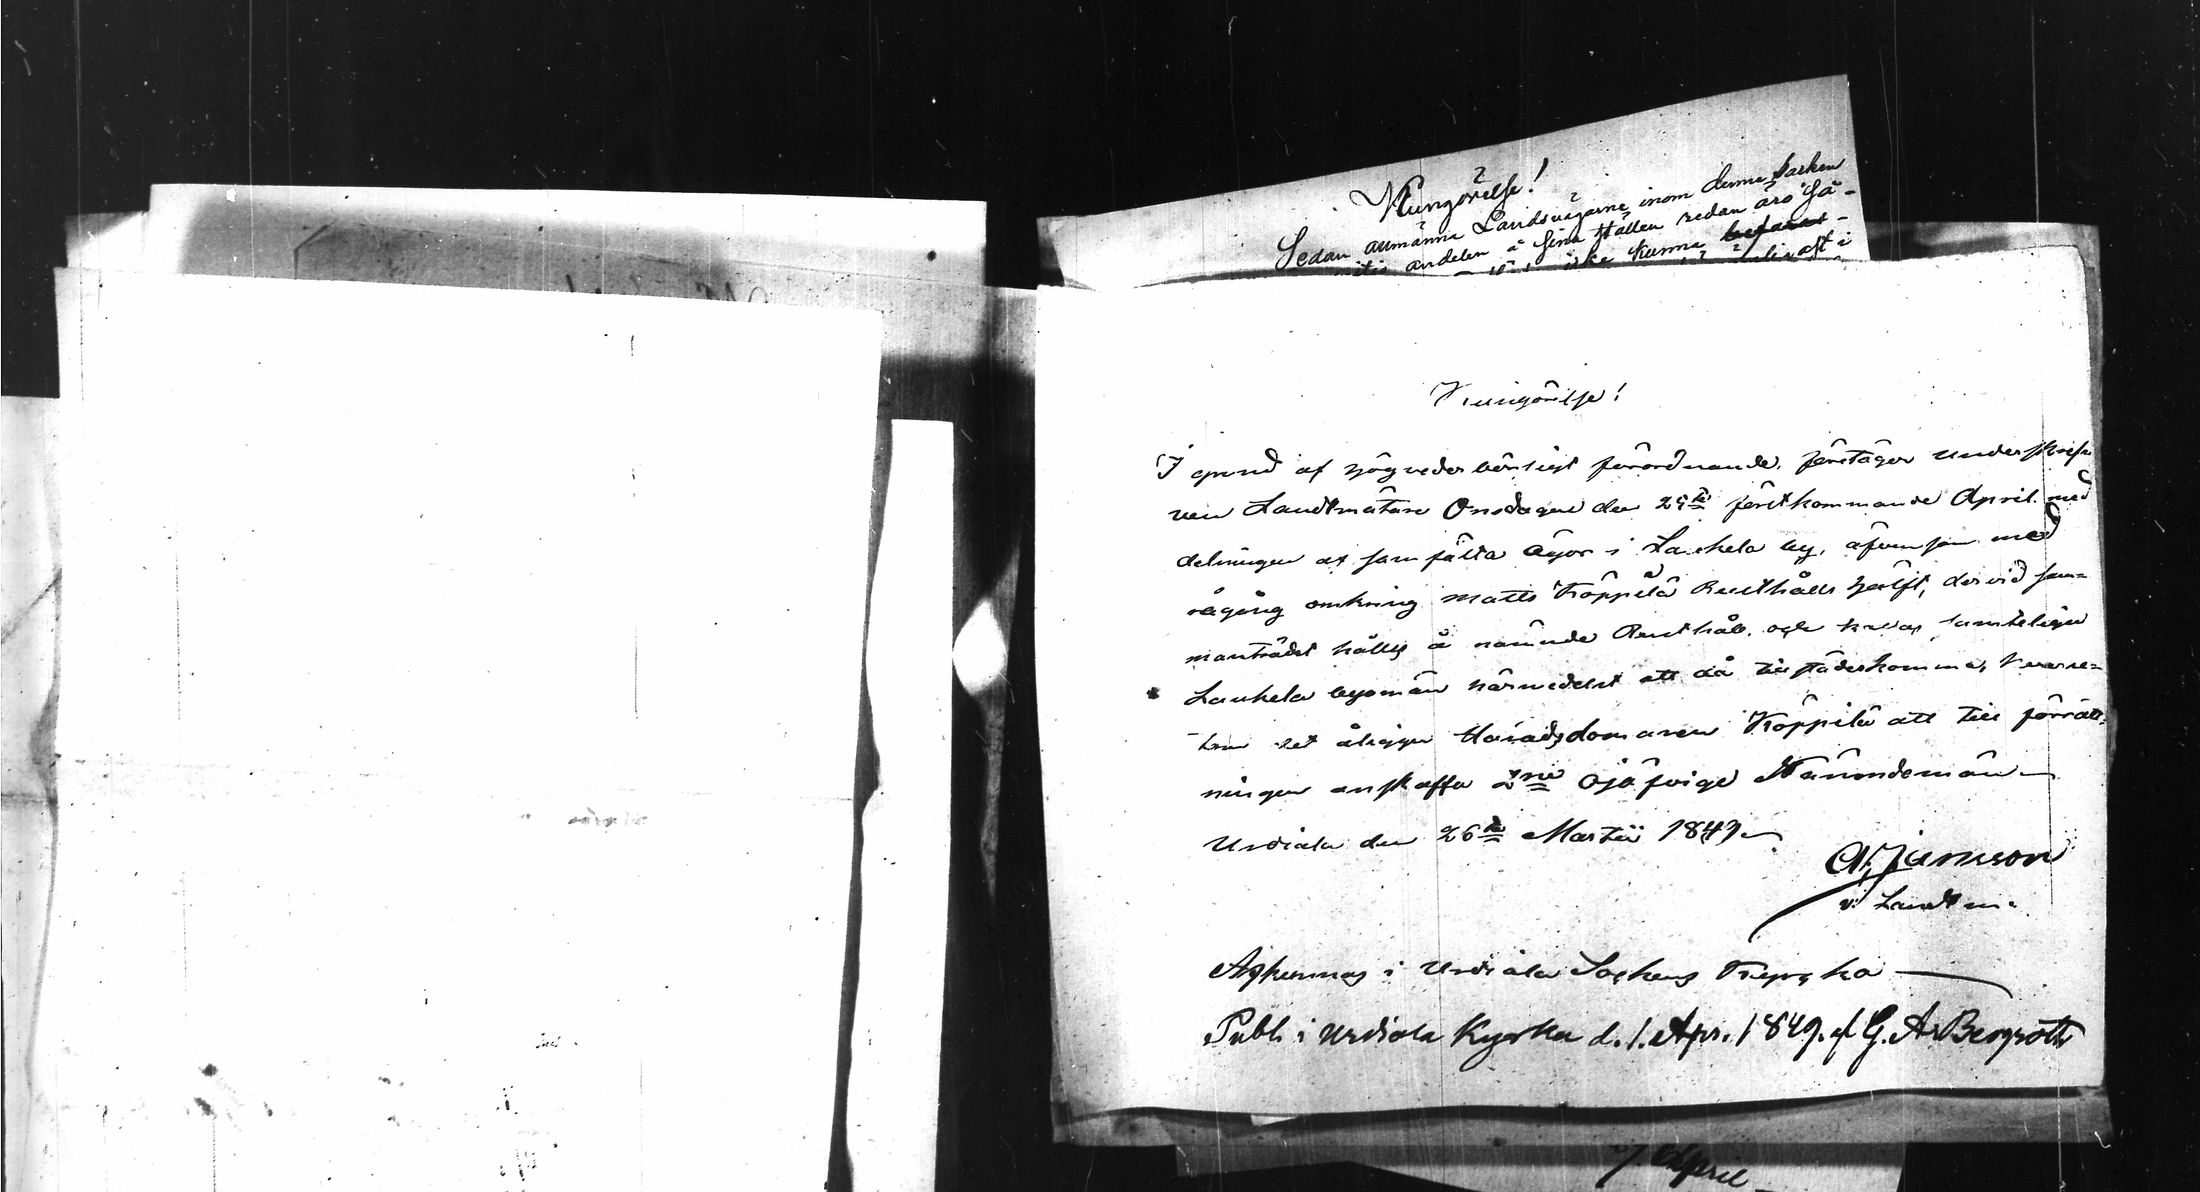 Kungörelse!
Sedan allmänna Landsvägarne inom denna Socken
andelen å sina ställen redan äro så-
icke kunna befaras
Kungörelse!
I grund af högvederbörligt förordnande, företager underskrif-
ven Landtmätare Onsdagen den 25te förstkommande April med
delningen af samfälta ägor i Laukela by, äfvensom med
rågång omkring Matts Köppilä Rusthålls hälft, dervid sam=
manträdet hålles å nämnde Rusthåll och kallas samtelige
Laukela byamän härmedelst att då tillstädeskomma, hvarut=
om det åligger Häradsdomaren Köppilä att till förrätt=
ningen anskaffa 2ne ojäfvige Nämndemän
Urdiala den 26te Martii 1849
A. Jamsson
v. Landtm.
Afkunnas i Urdiala Sockens Kyrcka
Publ. i Urdiala Kyrka d. 1. Apr. 1849. af G. A. Bergroth
7. April